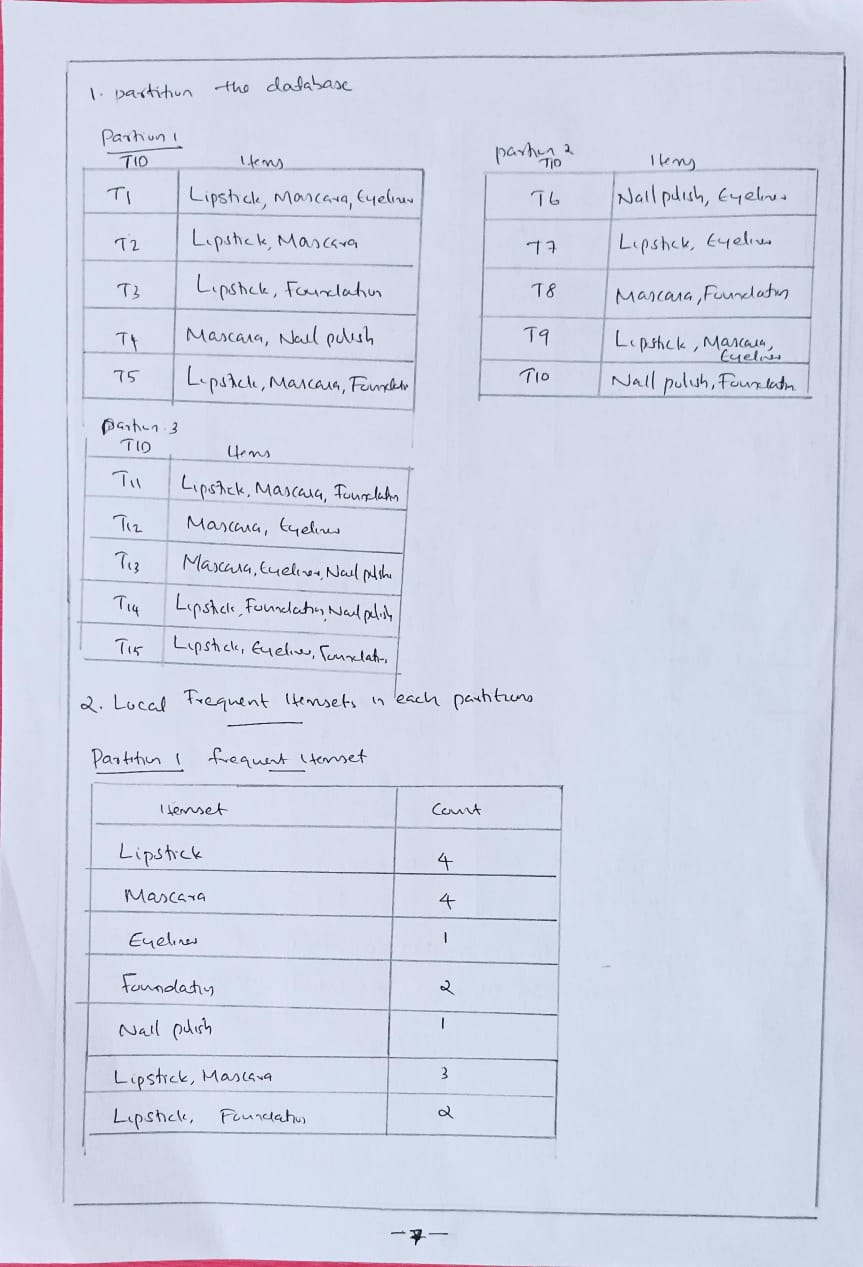 1. partition the database
Partion 1
TID Items
T1 Lipstick, Mascara, Eyeliner
T2 Lipstick, Mascara
T3 Lipstick, Foundation
T4 Mascara, Nail polish
T5 Lipstick, Mascara, Foundation
partion 2
TID Items
T6 Nail polish, Eyeliner
T7 Lipstick, Eyeliner
T8 Mascara, Foundation
T9 Lipstick, Mascara,
Eyeliner
T10 Nail polish, Foundation
Partion 3
TID Items
T11 Lipstick, Mascara, Foundation
T12 Mascara, Eyeliner
T13 Mascara, Eyeliner, Nail polish
T14 Lipstick, Foundation, Nail polish
T15 Lipstick, Eyeliner, Foundation
2. Local Frequent Itemsets in each partitions
Partition 1 frequent Itemset
Itemset Count
Lipstick 4
Mascara 4
Eyeliner 1
Foundation 2
Nail polish 1
Lipstick, Mascara 3
Lipstick, Foundation 2
-7-